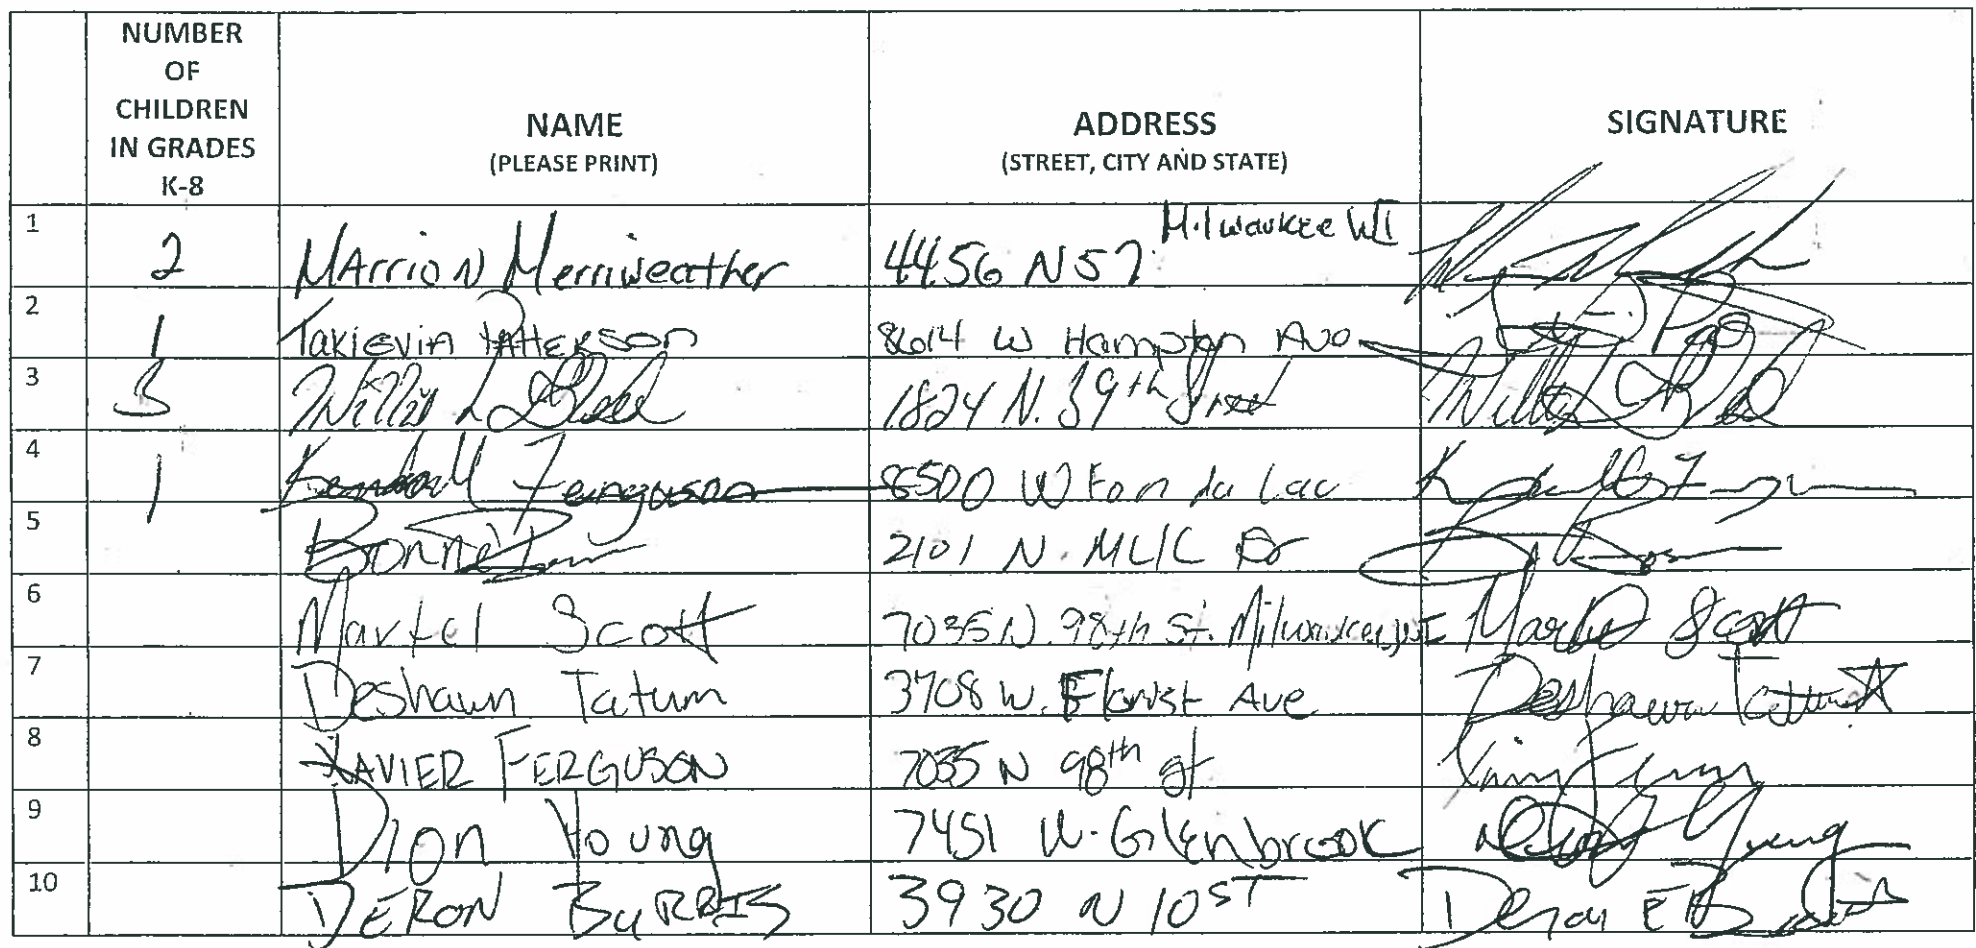 NUMBER
OF
CHILDREN
IN GRADES
K-8
NAME
(PLEASE PRINT)
ADDRESS
(STREET, CITY AND STATE)
SIGNATURE
1 2 MArrioN Merriweather 4456 N 57 Milwaukee WI
2 1 Takievin PAtterson 8614 W Hampton Ave
3 3 Willie L 1824 N. 39th Street
4 1 Kendall Ferguson 8500 W Fon du Lac
5 2101 N. MLK Dr
6 Martel Scott 7035 N. 98th St. Milwaukee, WI Martel Scott
7 Deshawn Tatum 3708 W. Florist Ave Deshawn Tatum
8 XAVIER FERGUSON 7035 N 98th st
9 Dion Young 7451 W. Glenbrook Young
10 DERON BURRIS 3930 N 10 ST Deron E